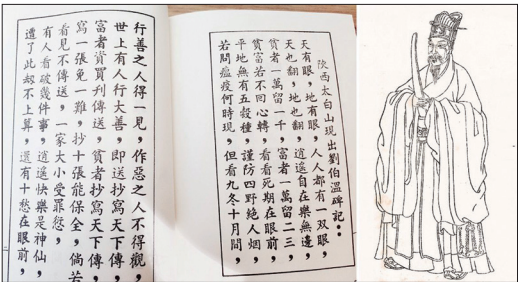 陝西太白山現出劉伯溫碑記：
天有眼，地有眼，人人都有一双眼，
天也翻，地也翻，逍遥自在樂無邊，
貧者一萬留一千，富者一萬留二三，
貧富若不回心轉，看看死期在眼前，
平地無有五穀種，謹防四野絕人烟，
若問瘟疫何時現，但看九冬十月間，
行善之人得一見，作惡之人不得觀，
世上有人行大善，即送抄寫天下傳，
富者資買刊傳送，貧者抄寫天下傳，
寫一張免一難，抄十張能保全，倘若
看見不傳送，一家大小受罪愆，
有人看破幾件事，逍遥快樂是神仙，
遭了此刼不上算，還有十愁在眼前，